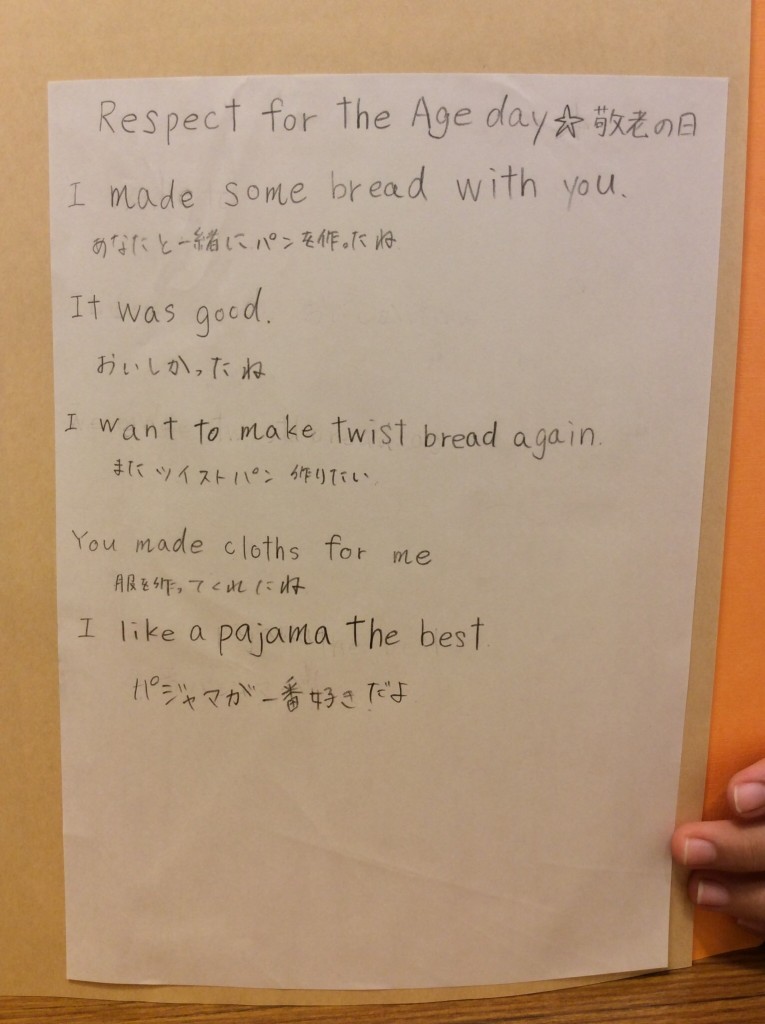 Respect for the Age day☆敬老の日
I made some bread with you.
あなたと一緒にパンを作ったね
It was good.
おいしかったね
I want to make twist bread again.
またツイストパン作りたい
You made cloths for me
服を作ってくれたね
I like a pajama the best
パジャマが一番好きだよ